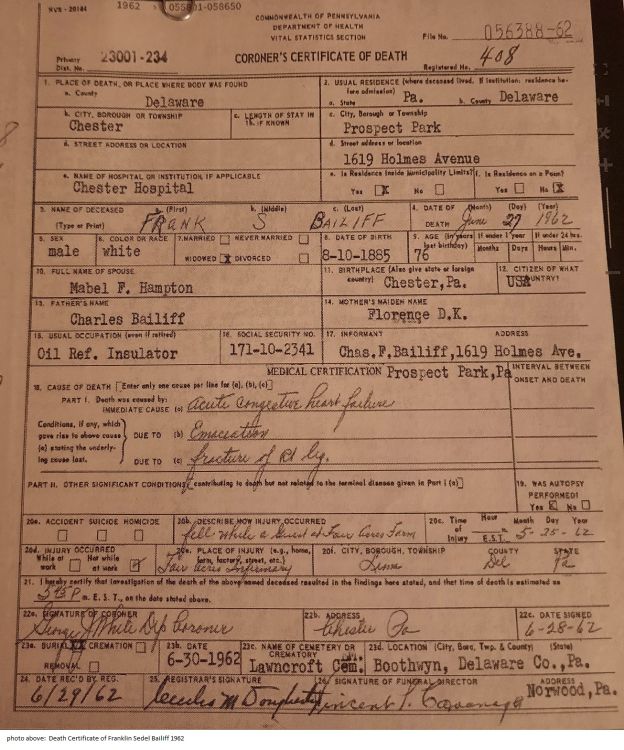 NVS - 20184
1962
055801-058650
COMMONWEALTH OF PENNSYLVANIA
DEPARTMENT OF HEALTH
VITAL STATISTICS SECTION
File No. 056388-62
Primary Dist. No. 23001-234
CORONER'S CERTIFICATE OF DEATH
Registered No. 408
1. PLACE OF DEATH, OR PLACE WHERE BODY WAS FOUND
a. County
Delaware
2. USUAL RESIDENCE (where deceased lived. If institution: residence before admission)
a. State Pa. b. County Delaware
b. CITY, BOROUGH OR TOWNSHIP
Chester
c. LENGTH OF STAY IN 1b. IF KNOWN
c. City, Borough or Township
Prospect Park
d. STREET ADDRESS OR LOCATION
d. Street address or location
1619 Holmes Avenue
e. NAME OF HOSPITAL OR INSTITUTION, IF APPLICABLE
Chester Hospital
e. Is Residence Inside Municipality Limits?
Yes X No
f. Is Residence on a Farm?
Yes No X
3. NAME OF DECEASED
(Type or Print)
a. (First) b. (Middle) c. (Last)
FRANK S BAILIFF
4. DATE OF DEATH (Month) (Day) (Year)
June 27 1962
5. SEX
male
6. COLOR OR RACE
white
7. MARRIED NEVER MARRIED
WIDOWED X DIVORCED
8. DATE OF BIRTH
8-10-1885
9. AGE (in years last birthday)
76
If under 1 year
Months Days
If under 24 hrs.
Hours Min.
10. FULL NAME OF SPOUSE
Mabel F. Hampton
11. BIRTHPLACE (Also give state or foreign country)
Chester, Pa.
12. CITIZEN OF WHAT COUNTRY?
USA
13. FATHER'S NAME
Charles Bailiff
14. MOTHER'S MAIDEN NAME
Florence D.K.
15. USUAL OCCUPATION (even if retired)
Oil Ref. Insulator
16. SOCIAL SECURITY NO.
171-10-2341
17. INFORMANT ADDRESS
Chas.F.Bailiff,1619 Holmes Ave.
Prospect Park,Pa
MEDICAL CERTIFICATION
INTERVAL BETWEEN ONSET AND DEATH
18. CAUSE OF DEATH [Enter only one cause per line for (a), (b), (c)]
PART I. Death was caused by:
IMMEDIATE CAUSE (a) acute congestive heart failure
Conditions, if any, which gave rise to above cause (a) stating the underlying cause last.
DUE TO (b) Emaceation
DUE TO (c) fracture of Rt leg.
PART II. OTHER SIGNIFICANT CONDITIONS [contributing to death but not related to the terminal disease given in Part I (a)]
19. WAS AUTOPSY PERFORMED?
Yes No
20a. ACCIDENT SUICIDE HOMICIDE
20b. DESCRIBE HOW INJURY OCCURRED
fell while a Guest at Fair Acres Farm
20c. Time of Injury
Hour Month Day Year
E.S.T. 5-25-62
20d. INJURY OCCURRED
While at work Not while at work
20e. PLACE OF INJURY (e.g., home, farm, factory, street, etc.)
Fair Acres Infirmary
20f. CITY, BOROUGH, TOWNSHIP COUNTY STATE
Lima Del Pa
21. I hereby certify that investigation of the death of the above named deceased resulted in the findings here stated, and that time of death is estimated as
5:45 P m. E. S. T., on the date stated above.
22a. SIGNATURE OF CORONER
George J White Dep Coroner
22b. ADDRESS
Chester Pa
22c. DATE SIGNED
6-28-62
23a. BURIAL XX CREMATION
REMOVAL
23b. DATE
6-30-1962
23c. NAME OF CEMETERY OR CREMATORY
Lawncroft Cem.
23d. LOCATION (City, Boro, Twp. & County) (State)
Boothwyn, Delaware Co., Pa.
24. DATE REC'D BY REG.
6/29/62
25. REGISTRAR'S SIGNATURE
Cecelia M Dougherty
26. SIGNATURE OF FUNERAL DIRECTOR
Vincent P. Cavanagh
ADDRESS
Norwood, Pa.
photo above: Death Certificate of Franklin Sedel Bailiff 1962